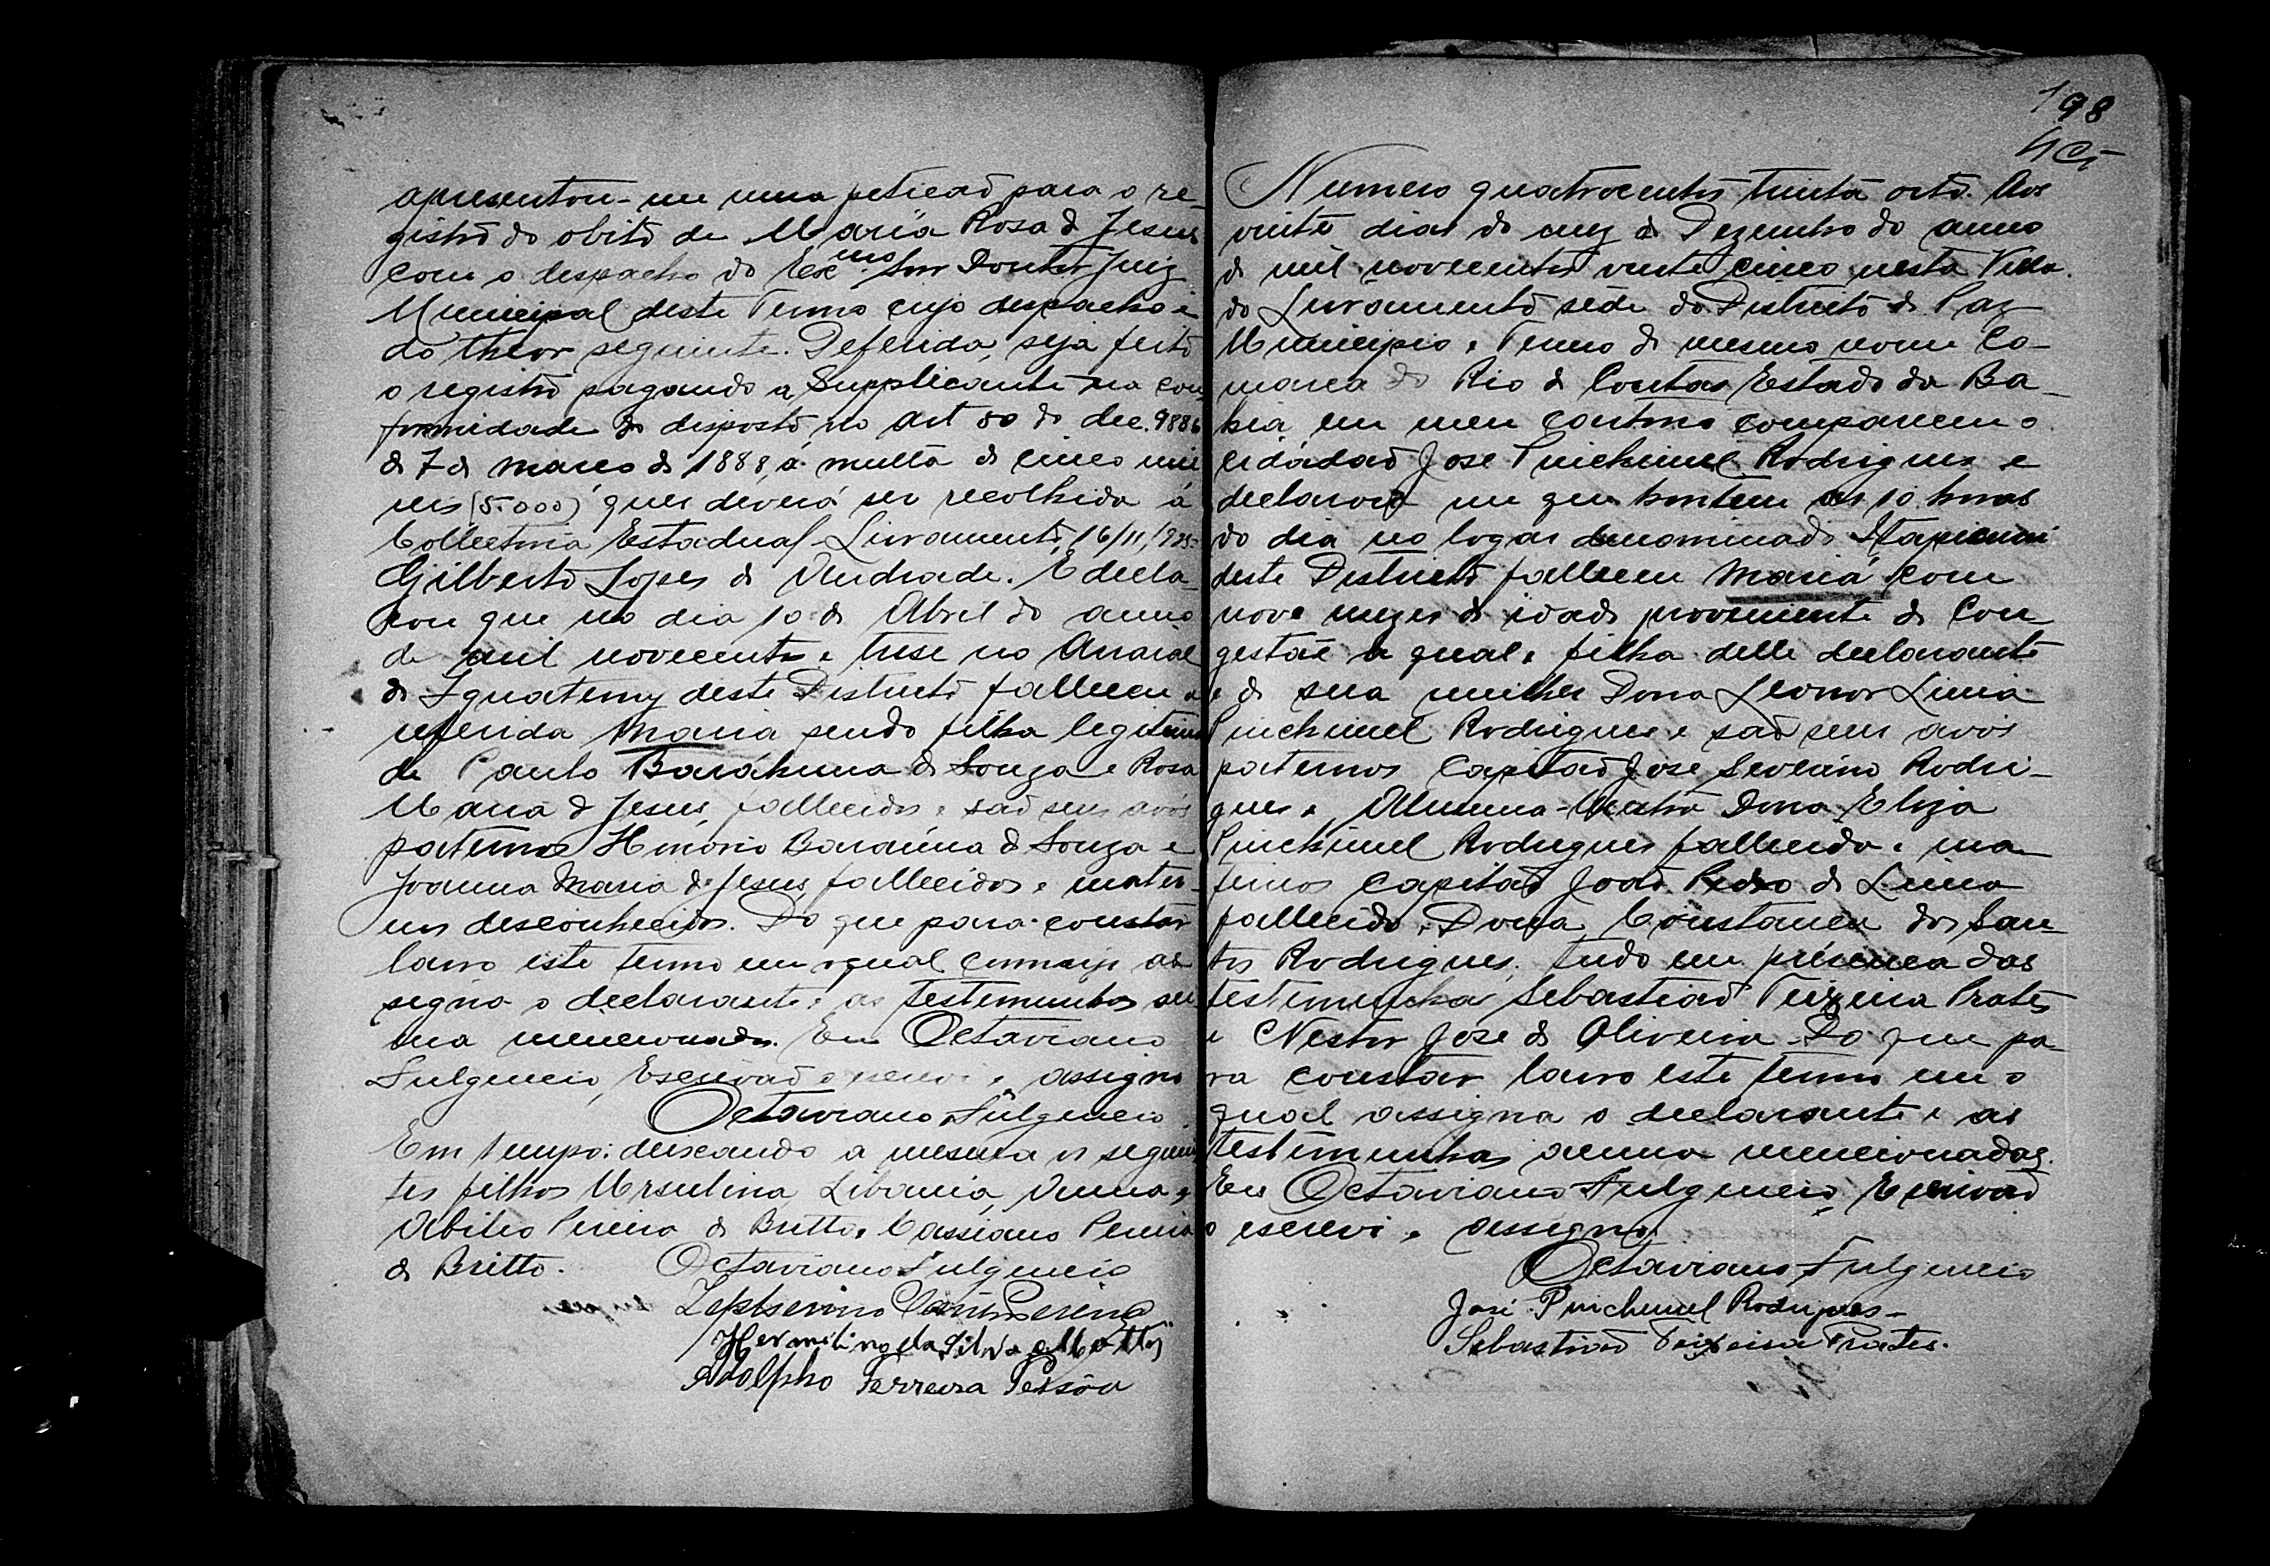 apresentou-me uma peticaõ para o re-
gistrõ do obitõ de Maria Rosa de Jesus
com o despacho do Exc.mo Snr Doutor Juiz
Municipal deste Termo cujo despacho é
do theor seguinte. Deferida, seja feitõ
o registrõ pagando a Supplicante na con
formidade do dispostõ no Art 50 do dec. 9886
de 7 de março de 1888, a multa de cinco mil
reis (5.000) que deverá ser recolhida á
Collectoria Estadual. Livramentõ, 16/11/925.
Gilbertõ Lopes de Andrade. E decla-
rou que no dia 10 de Abril do anno
de mil novecentos e trese no Arraial
de Iguatemy deste Districtõ falleceu a
referida Maria sendo filha legitima
de Paulo Baraúna de Souza e Rosa
Maria de Jesus, fallecidos e saõ seus avós
paternos Honorio Baraúna de Souza e
Joanna Maria de Jesus, fallecidos e mater-
nos desconhecidos. Do que para constar
lavro este termo em o qual commigo as
signa o declarante e as testemunhas aci
ma mencionadas. Eu Octaviano
Fulgencio, Escrivaõ o escrevi e assigno
Octaviano Fulgencio
Em tempo: deixando a mesma os seguin
tes filhos Ursulina, Libania, Anna e
Abilio Pereira de Britto e Cassiano Pereira
de Britto. Octaviano Fulgencio
Zepherino
Hermilino da Silva Mattos
Adolpho Ferreira Pessôa
198
Numero quatrocentos trinta oitõ. Aos
vinte dias do mez de Dezembro do anno
de mil novecentos vinte cinco nesta Villa
do Livramentõ séde do Districtõ de Paz
Municipio e Termo do mesmo nome Co-
marca do Rio de Contas Estado da Ba-
hia em meu Cartorio compareceu o
cidadaõ José Pinchemel Rodrigues e
declarou me que hontem as 10 horas
do dia no logar denominado Itapicuru
deste Districtõ falleceu Maria com
nove mezes de idade proveniente de Con
gestaõ a qual é filha delle declarante
e de sua mulher Dona Leonor Lima
Pinchemel Rodrigues e saõ seus avós
paternos Capitaõ José Severino Rodri-
gues e Dona Eliza
Pinchemel Rodrigues fallecida e ma
ternos Capitaõ Joaõ Pedro de Lima
fallecido e Dona Constancia dos San-
tos Rodrigues, tudo em presença das
testemunhas Sebastiaõ Teixeira Prates
e Nestor José de Oliveira. Do que pa-
ra constar lavro este termo em o
qual assigna o declarante e as
testemunhas acima mencionadas.
Eu Octaviano Fulgencio, Escrivaõ
o escrevi e assigno,
Octaviano Fulgencio
José Pinchemel Rodrigues-
Sebastiaõ Teixeira Prates.